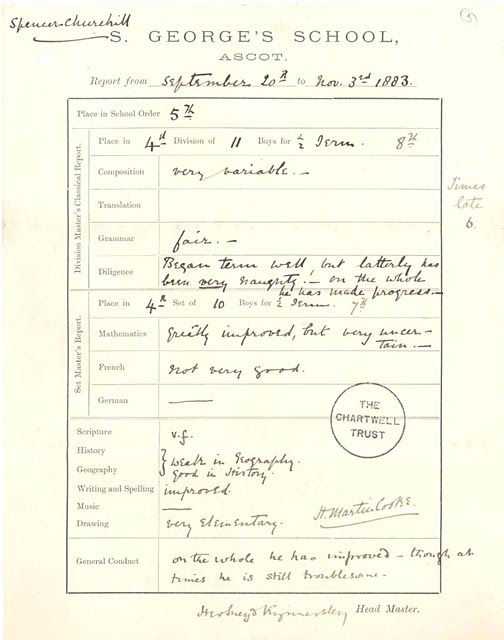 Spencer-Churchill
(5)
S. GEORGE'S SCHOOL,
ASCOT.
Report from September 20th to Nov. 3rd 1883.
Place in School Order 5th
Division Master's Classical Report.
Place in 4th Division of 11 Boys for ½ Term. 8th
Composition very variable. —
Translation
Grammar fair. —
Diligence Began term well, but latterly has
been very naughty! — on the whole
he has made progress. —
Times
late
6.
Set Master's Report.
Place in 4th Set of 10 Boys for ½ Term. 7th
Mathematics Greatly improved, but very uncer-
tain. —
French Not very good.
German ——
THE
CHARTWELL
TRUST
Scripture v.f.
History
Geography } weak in Geography.
good in History.
Writing and Spelling improved.
Music —
Drawing very Elementary.
H. Martin Cooke.
General Conduct on the whole he has improved — though at
times he is still troublesome —
H. W. Sneyd Kynnersley Head Master.